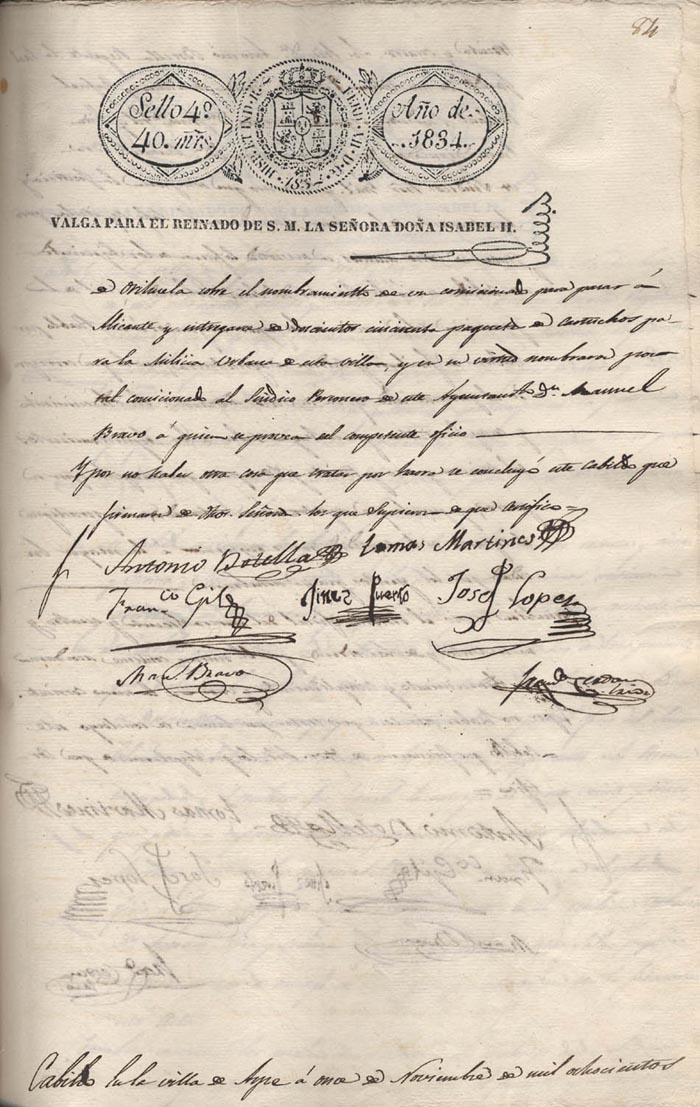 84
Sello 4º
40. mrs.
HISP. ET IND. R.
FERD. VII. D. G.
1834
Año de
1834.
VALGA PARA EL REINADO DE S. M. LA SEÑORA DOÑA ISABEL II.
de Orihuela sobre el nombramiento de un comicionado para pasar á
Alicante y entregarse de doscientos cincuenta paquetes de cartuchos pa
ra la Milicia Urbana de esta villa, y en su virtud nombraron por
tal comicionado al Sindico Personero de este Ayuntamto. Dn. Manuel
Bravo á quien se provea del competente oficio
Y por no haber otra cosa que tratar por haora se concluyó este Cabildo que
firmaron de dhos. Señores los que supieron de que certifico =
Antonio Botella Tomas Martines
Franco Gil Jines Puerto José Lopez
Manl. Bravo
Cabildo En la villa de Aspe á once de Noviembre de mil ochocientos